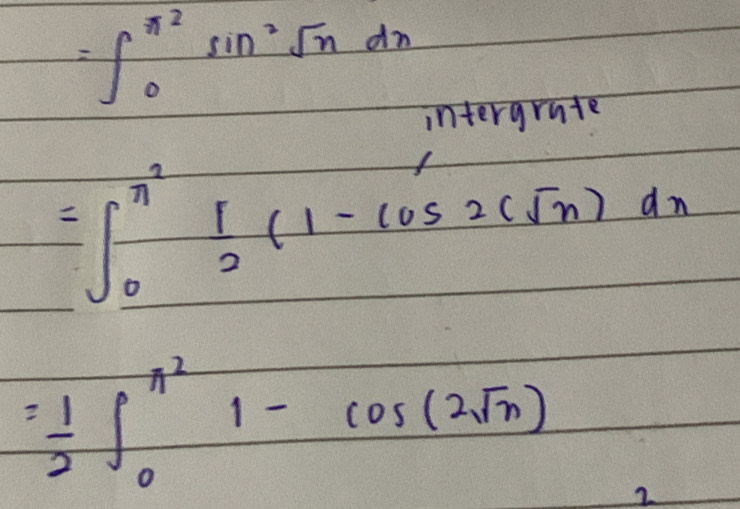 = ∫₀^π² sin² √x dx
intergrate
= ∫₀^π² 1/2 (1 - cos 2(√x) dx
= 1/2 ∫₀^π² 1 - cos(2√x)
2